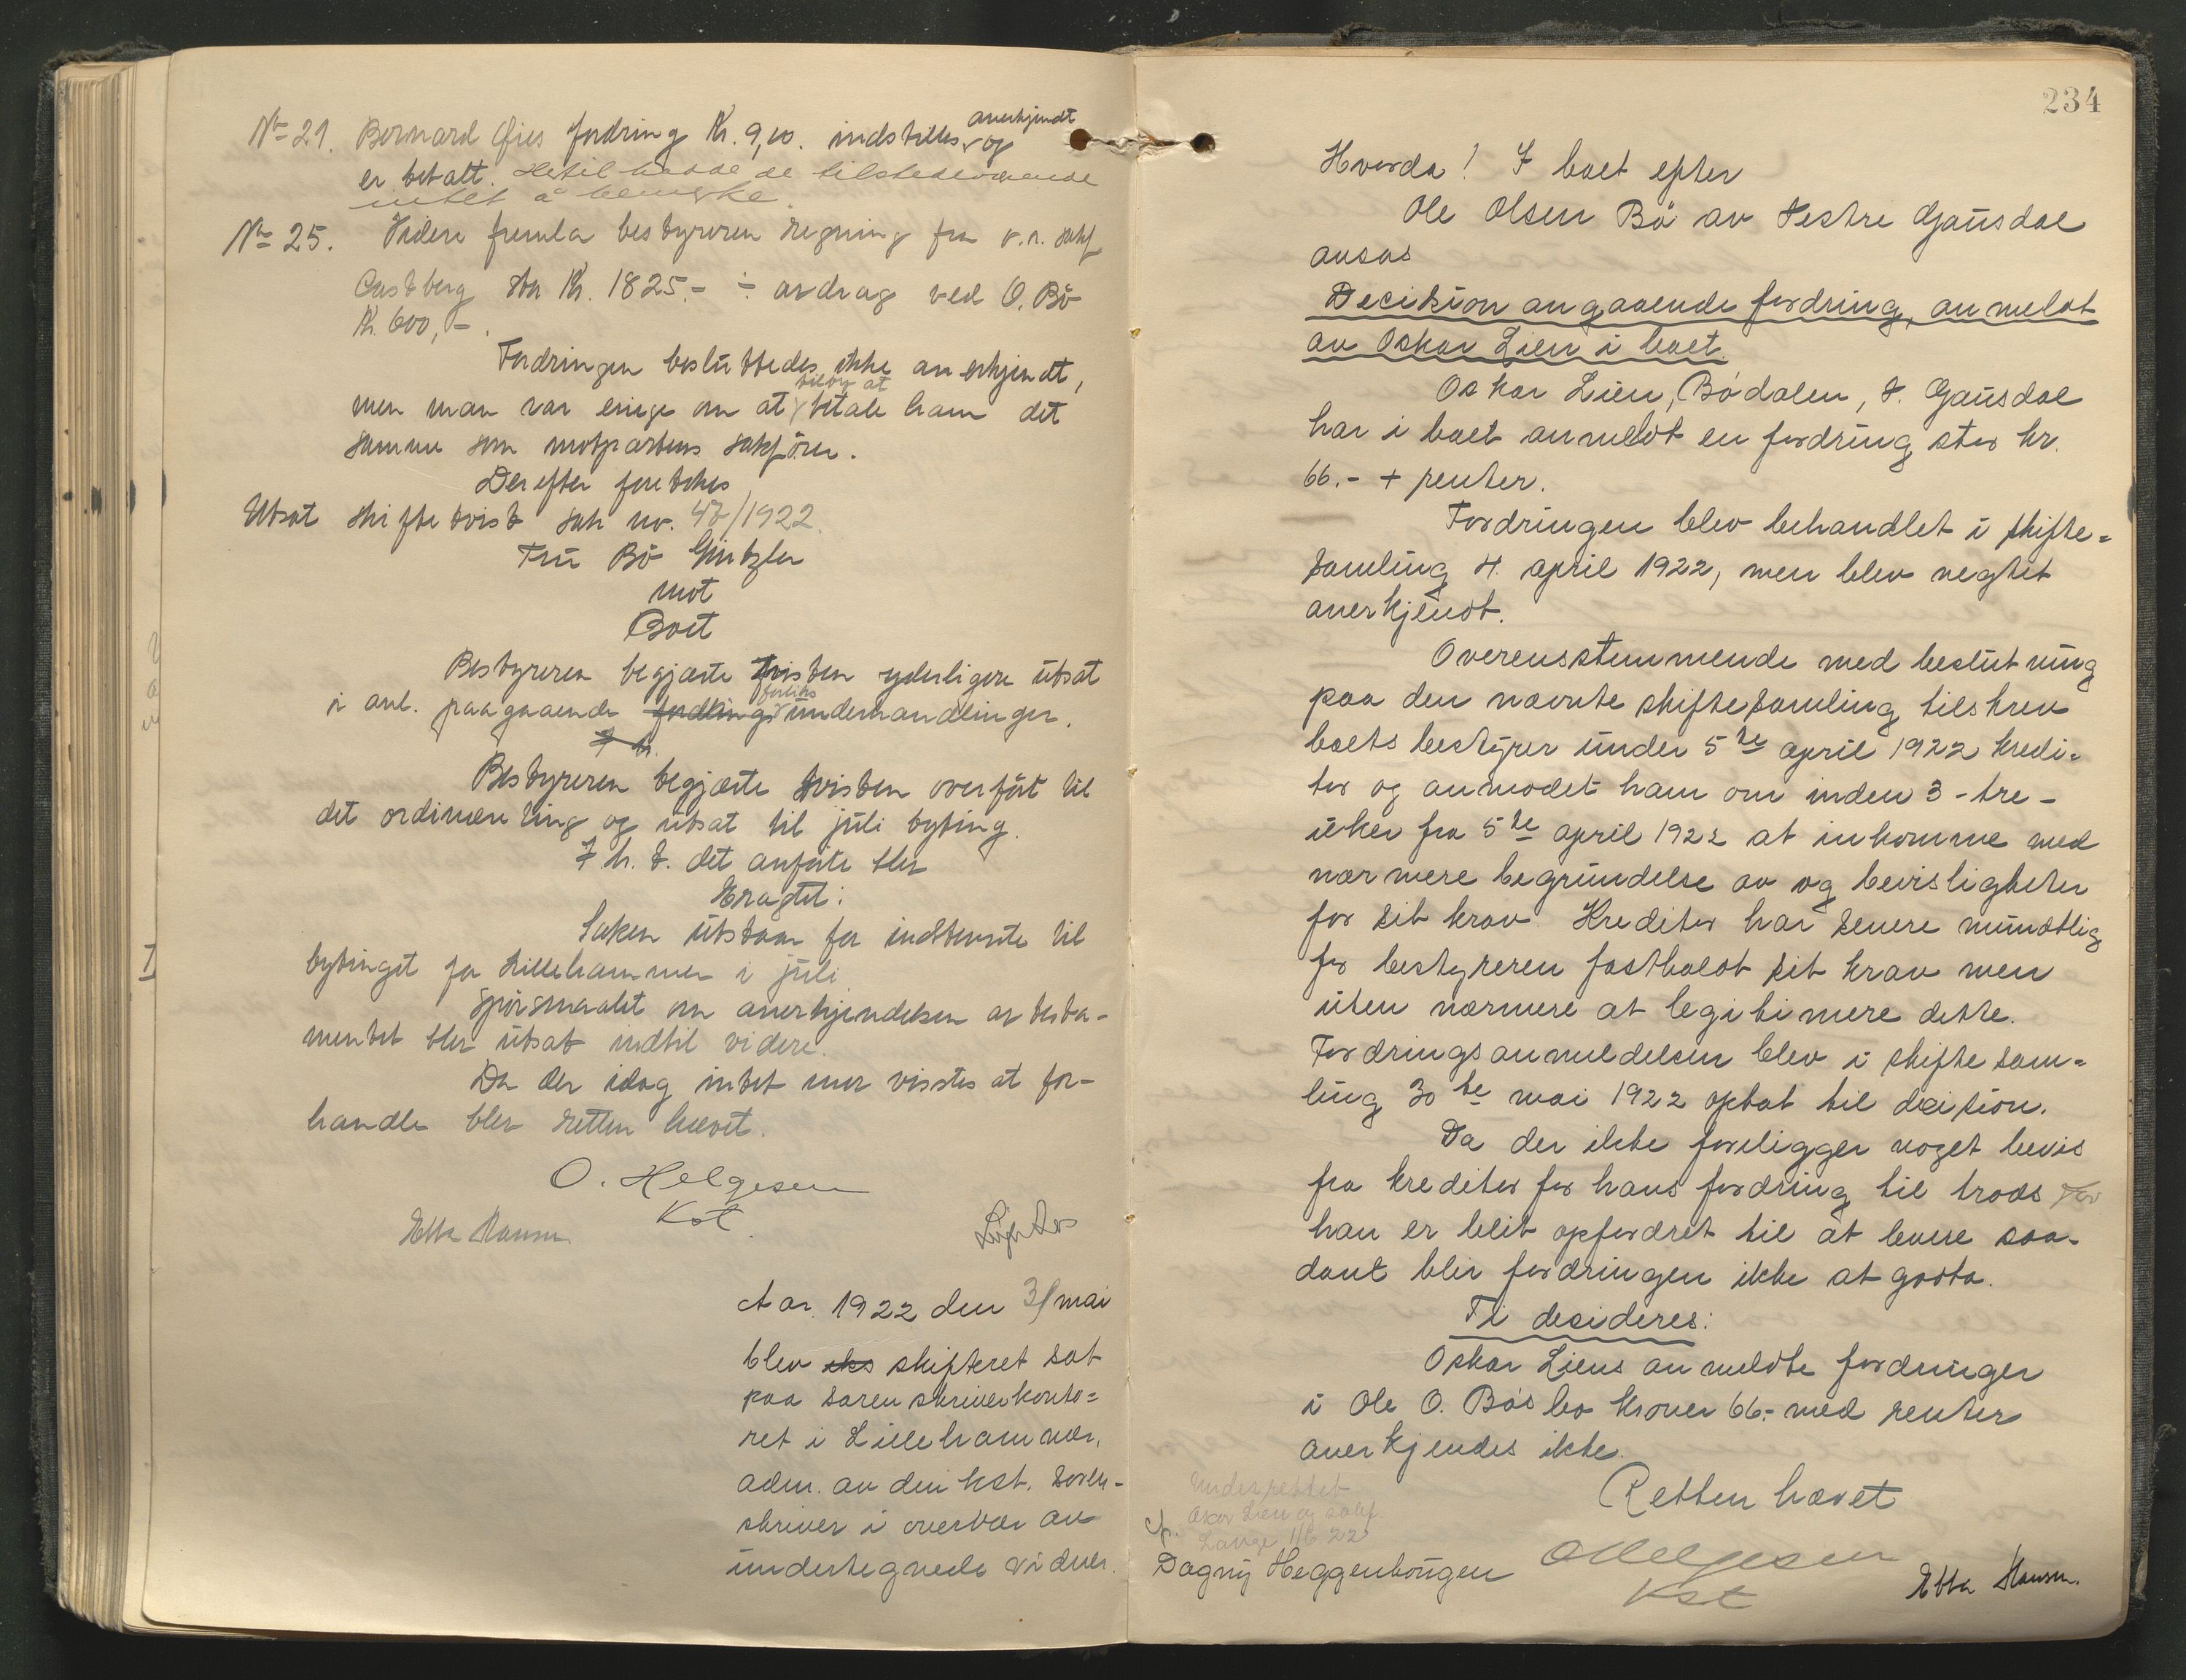 No 21. Bernard Öies fordring Kr. 9,10. indstilles anerkjendt og
er betalt. Hertil hadde de tilstedeværende
intet å bemerke.
No 25. Videre fremla bestyreren regning fra o.r. sakf
Castberg stor Kr. 1825.- ÷ avdrag ved O. Bö
Kr. 600,-.
Fordringen besluttedes ikke anerkjendt,
men man var enige om at tilby at betale ham det
samme som motpartens sakförer.
Derefter foretokes
Utsat skiftetvist sak nr. 47/1922.
Fru Bö Gintzler
mot
Boet
Bestyreren begjærte tvisten yderligere utsat
i anl. paagaaende fordlings forliks underhandlinger.
F. h.
Bestyreren begjærte tvisten overfört til
det ordinære ting og utsat til juli byting.
I h. t. det anförte blev
Eragtet:
Saken utstaar for indtemte til
bytinget for Lillehammer i juli
Spörsmaalet om anerkjendelsen av testa-
mentet blev utsat indtil videre.
Da der idag intet mer visstes at for-
handle blev retten hævet.
O. Helgesen
Kst.
Ebba Hansen
Aar 1922 den 31 mai
blev skifteret sat
paa sorenskriverkonto=
ret i Lillehammer,
adm. av den kst. soren-
skriver i overvær av
undertegnede vidner.
234
Hvorda! I boet efter
Ole Olsen Bö av Vestre Gausdal
avsas
Decision angaaende fordring, anmeldt
av Oskar Lien i boet.
Oskar Lien, Bödalen, V. Gausdal
har i boet anmeldt en fordring stor kr.
66.- + renter.
Fordringen blev behandlet i skifte=
samling 4. april 1922, men blev negtet
anerkjendt.
Overensstemmende med beslutning
paa den nævnte skiftesamling tilskrev
boets bestyrer under 5te april 1922 kredi=
tor og anmodet ham om inden 3 - tre -
uker fra 5te april 1922 at inkomme med
nærmere begrundelse av og bevisligheter
for sit krav Kreditor har senere mundtlig
for bestyreren fastholdt sit krav men
uten nærmere at legitimere dette.
Fordringsanmeldelsen blev i skiftesam=
ling 30te mai 1922 optat til decision.
Da der ikke foreligger noget bevis
fra kreditor for hans fordring til trods for
han er blit opfordret til at levere saa-
dant blir fordringen ikke at godta.
Ti decideres:
Oskar Liens anmeldte fordringer
i Ole O. Bös bo kroner 66.- med renter
anerkjendes ikke.
Retten hævet
Underrettet
Oscar Lien og sakf.
Lange 1/6 22
Dagny Heggenhougen
O Helgesen
Kst
Ebba Hansen.